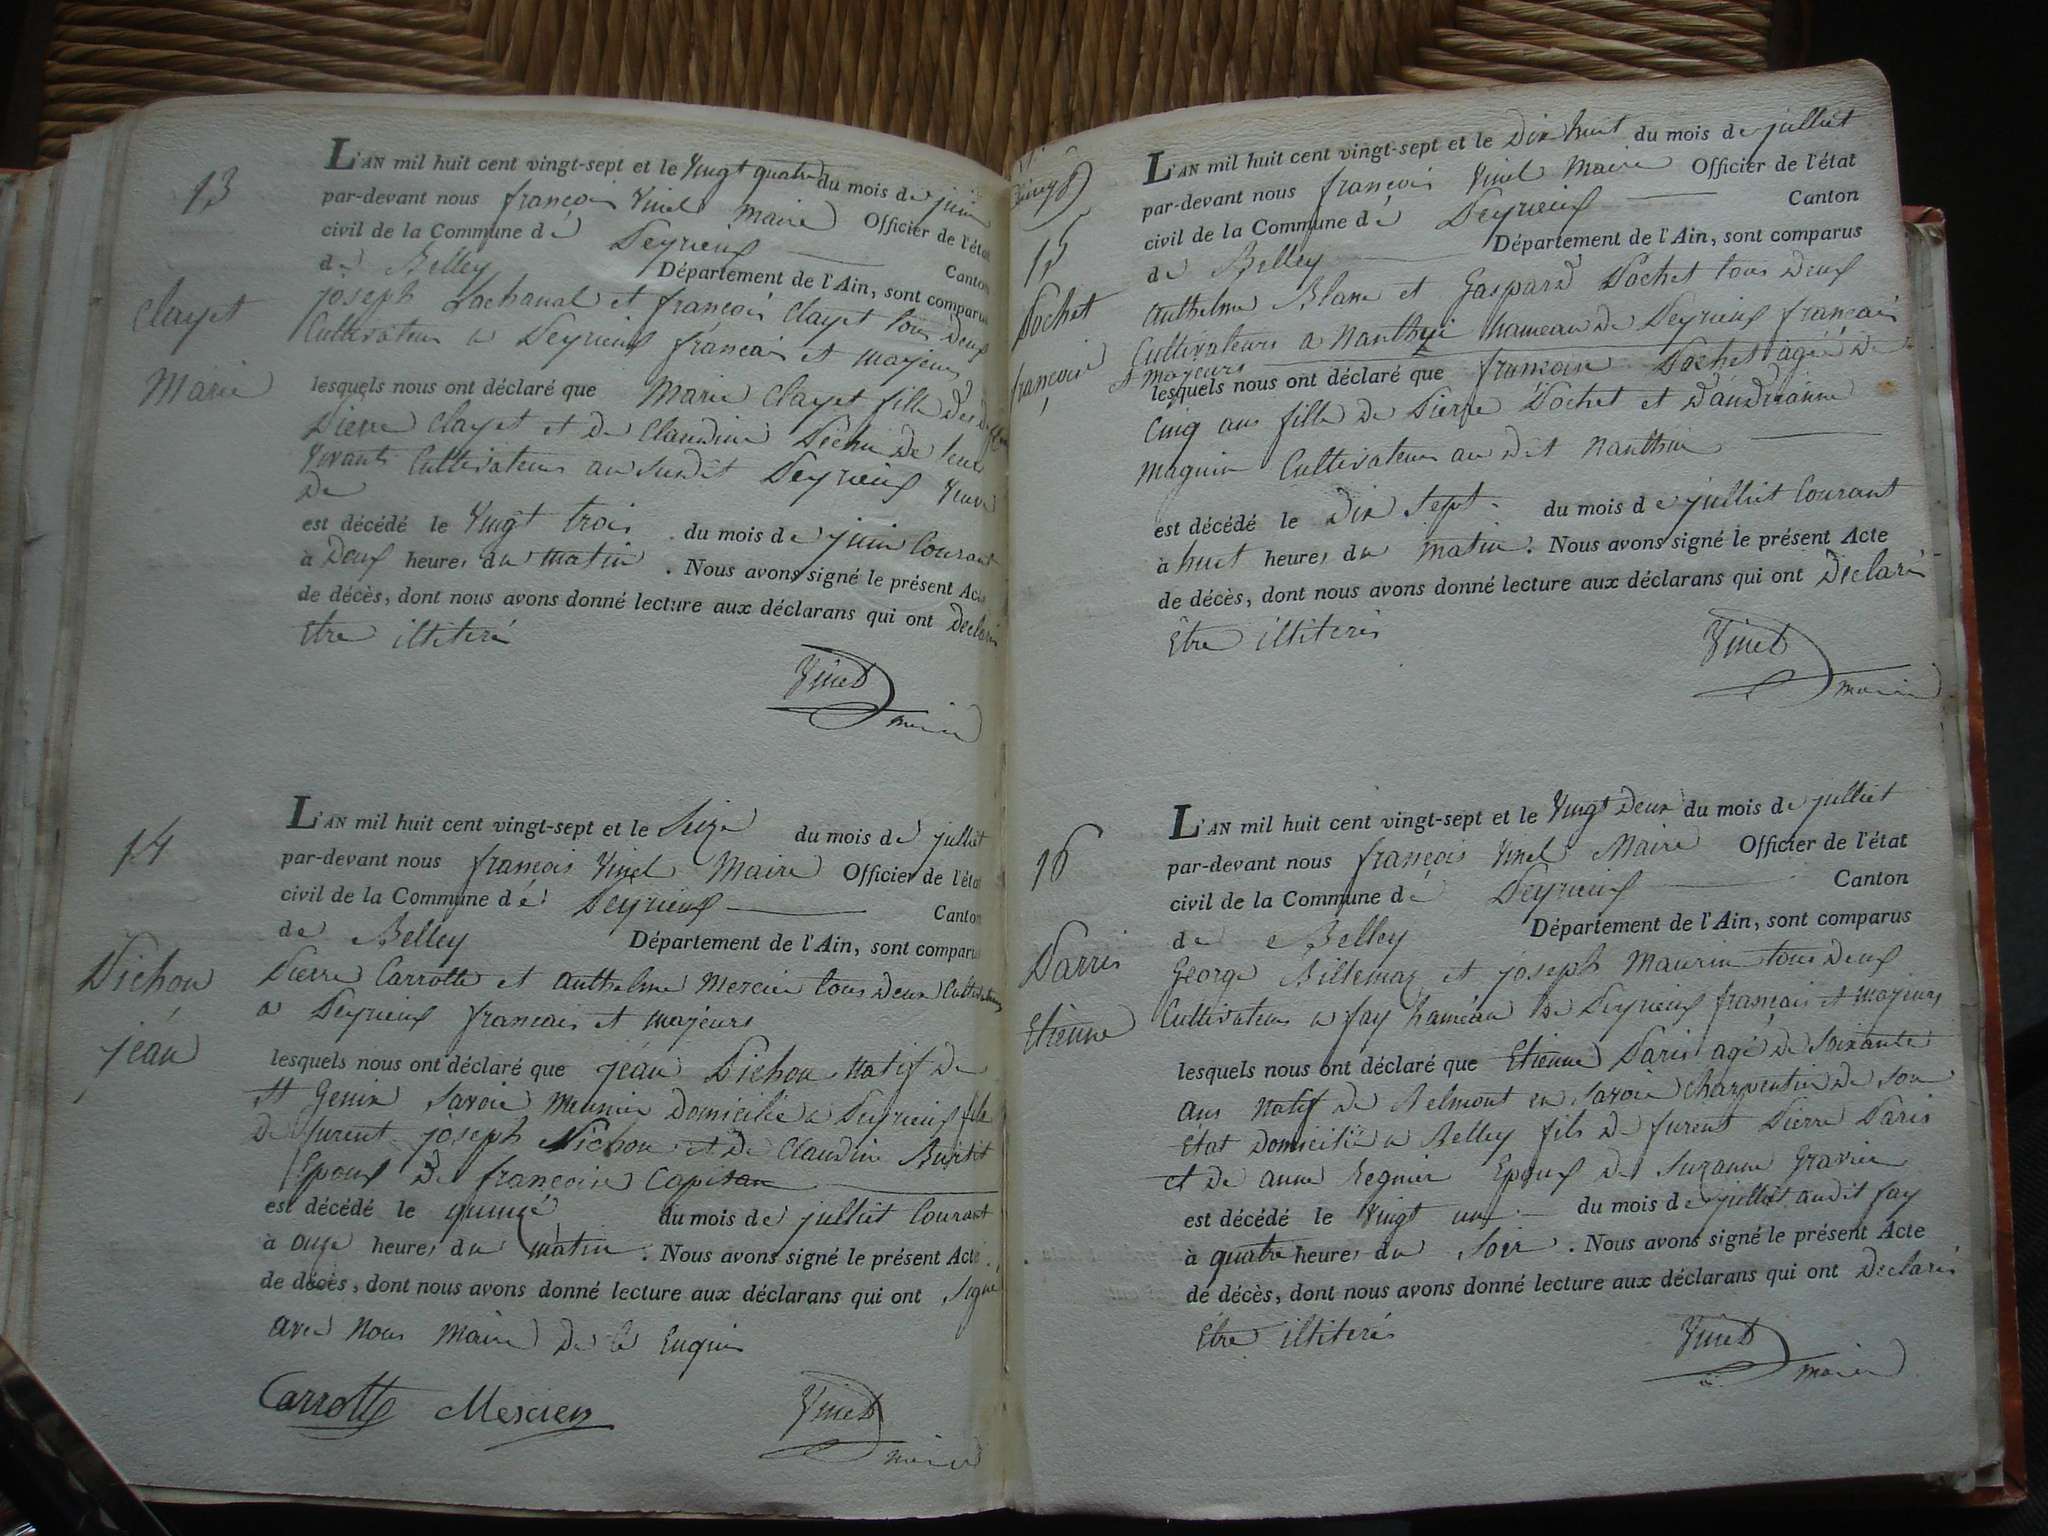 13
Clayet
Marie
L'AN mil huit cent vingt-sept et le Vingt quatre du mois de juin
par-devant nous françois Vinet Maire Officier de l'état
civil de la Commune de Peyrieux Canton
de Belley Département de l'Ain, sont comparus
joseph Lachanal et françois Clayet tous Deux
Cultivateurs a Peyrieux francais et majeurs
lesquels nous ont déclaré que Marie Clayet fille Des
Pierre Clayet et de Claudine Pechu De leur
Vivants Cultivateurs au susdit Peyrieux Veuve
De
est décédé le Vingt trois du mois de juin Courant
à Deux heures du matin. Nous avons signé le présent Acte
de décès, dont nous avons donné lecture aux déclarans qui ont Declarés
Etre illiterés
Vinet
maire
14
Pichon
jean
L'AN mil huit cent vingt-sept et le Seize du mois de julliet
par-devant nous françois Vinet Maire Officier de l'état
civil de la Commune de Peyrieux Canton
de Belley Département de l'Ain, sont comparus
Pierre Carrotte et Anthelme Mercier tous Deux Cultivateurs
a Peyrieux francais et majeurs
lesquels nous ont déclaré que jean Pichon Natif De
St Genix Savoie Meunier Domicilié a Peyrieux fils
De furent joseph Pichon et De Claudine
Epoux De françoise Capitan
est décédé le quinze du mois de julliet Courant
à onze heures du matin. Nous avons signé le présent Acte
de décès, dont nous avons donné lecture aux déclarans qui ont signé
avec Nous Maire De ce Enquis
Carrotte Mercier Vinet
maire
15
Pochet
françoise
L'AN mil huit cent vingt-sept et le Dix huit du mois de julliet
par-devant nous françois Vinet Maire Officier de l'état
civil de la Commune de Peyrieux Canton
de Belley Département de l'Ain, sont comparus
Anthelme Blanc et Gaspard Pochet tous Deux
Cultivateurs a Nanthui hameau De Peyrieux francais
et majeurs
lesquels nous ont déclaré que francoise Pochet agée De
Cinq ans fille De Pierre Pochet et D'andréanne
Magnin Cultivateurs au Dit Nanthui
est décédé le Dix sept du mois de julliet Courant
à huit heures du matin. Nous avons signé le présent Acte
de décès, dont nous avons donné lecture aux déclarans qui ont Declarés
Etre illiterés
Vinet
maire
16
Parris
Etienne
L'AN mil huit cent vingt-sept et le Vingt Deux du mois de julliet
par-devant nous françois Vinet Maire Officier de l'état
civil de la Commune de Peyrieux Canton
de Belley Département de l'Ain, sont comparus
George Billemaz et joseph Maurin tous Deux
Cultivateurs a fay hameau De Peyrieux francais et majeurs
lesquels nous ont déclaré que Etienne Paris agé De Soixante
ans Natif De Belmont en Savoie Charpentier De Son
Etat Domicilié a Belley fils De furent Pierre Paris
et De anne Regnier Epoux De Suzanne Gravier
est décédé le Vingt un du mois de julliet audit fay
à quatre heures du Soir. Nous avons signé le présent Acte
de décès, dont nous avons donné lecture aux déclarans qui ont Declarés
Etre illiterés
Vinet
maire